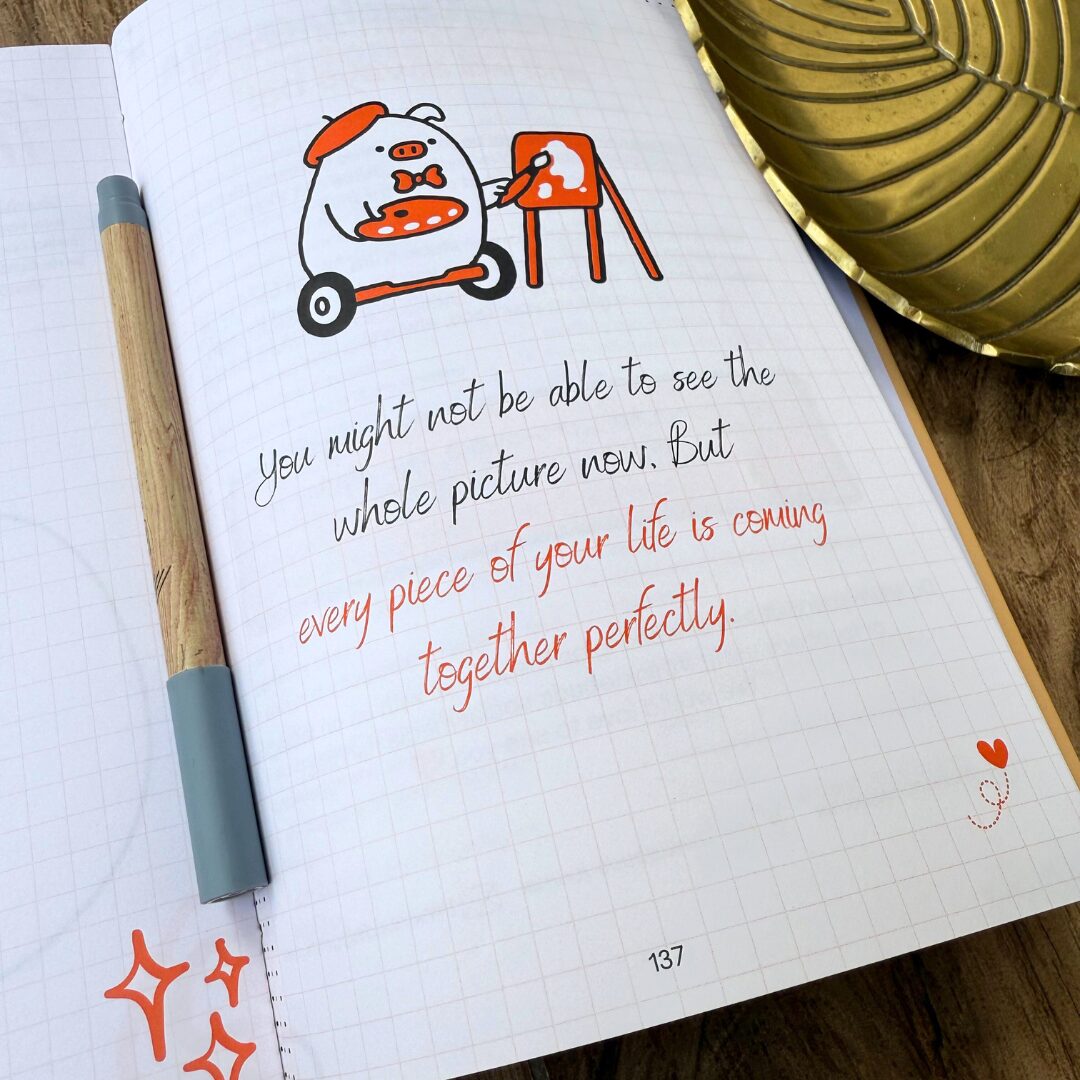 You might not be able to see the
whole picture now. But
every piece of your life is coming
together perfectly.
137